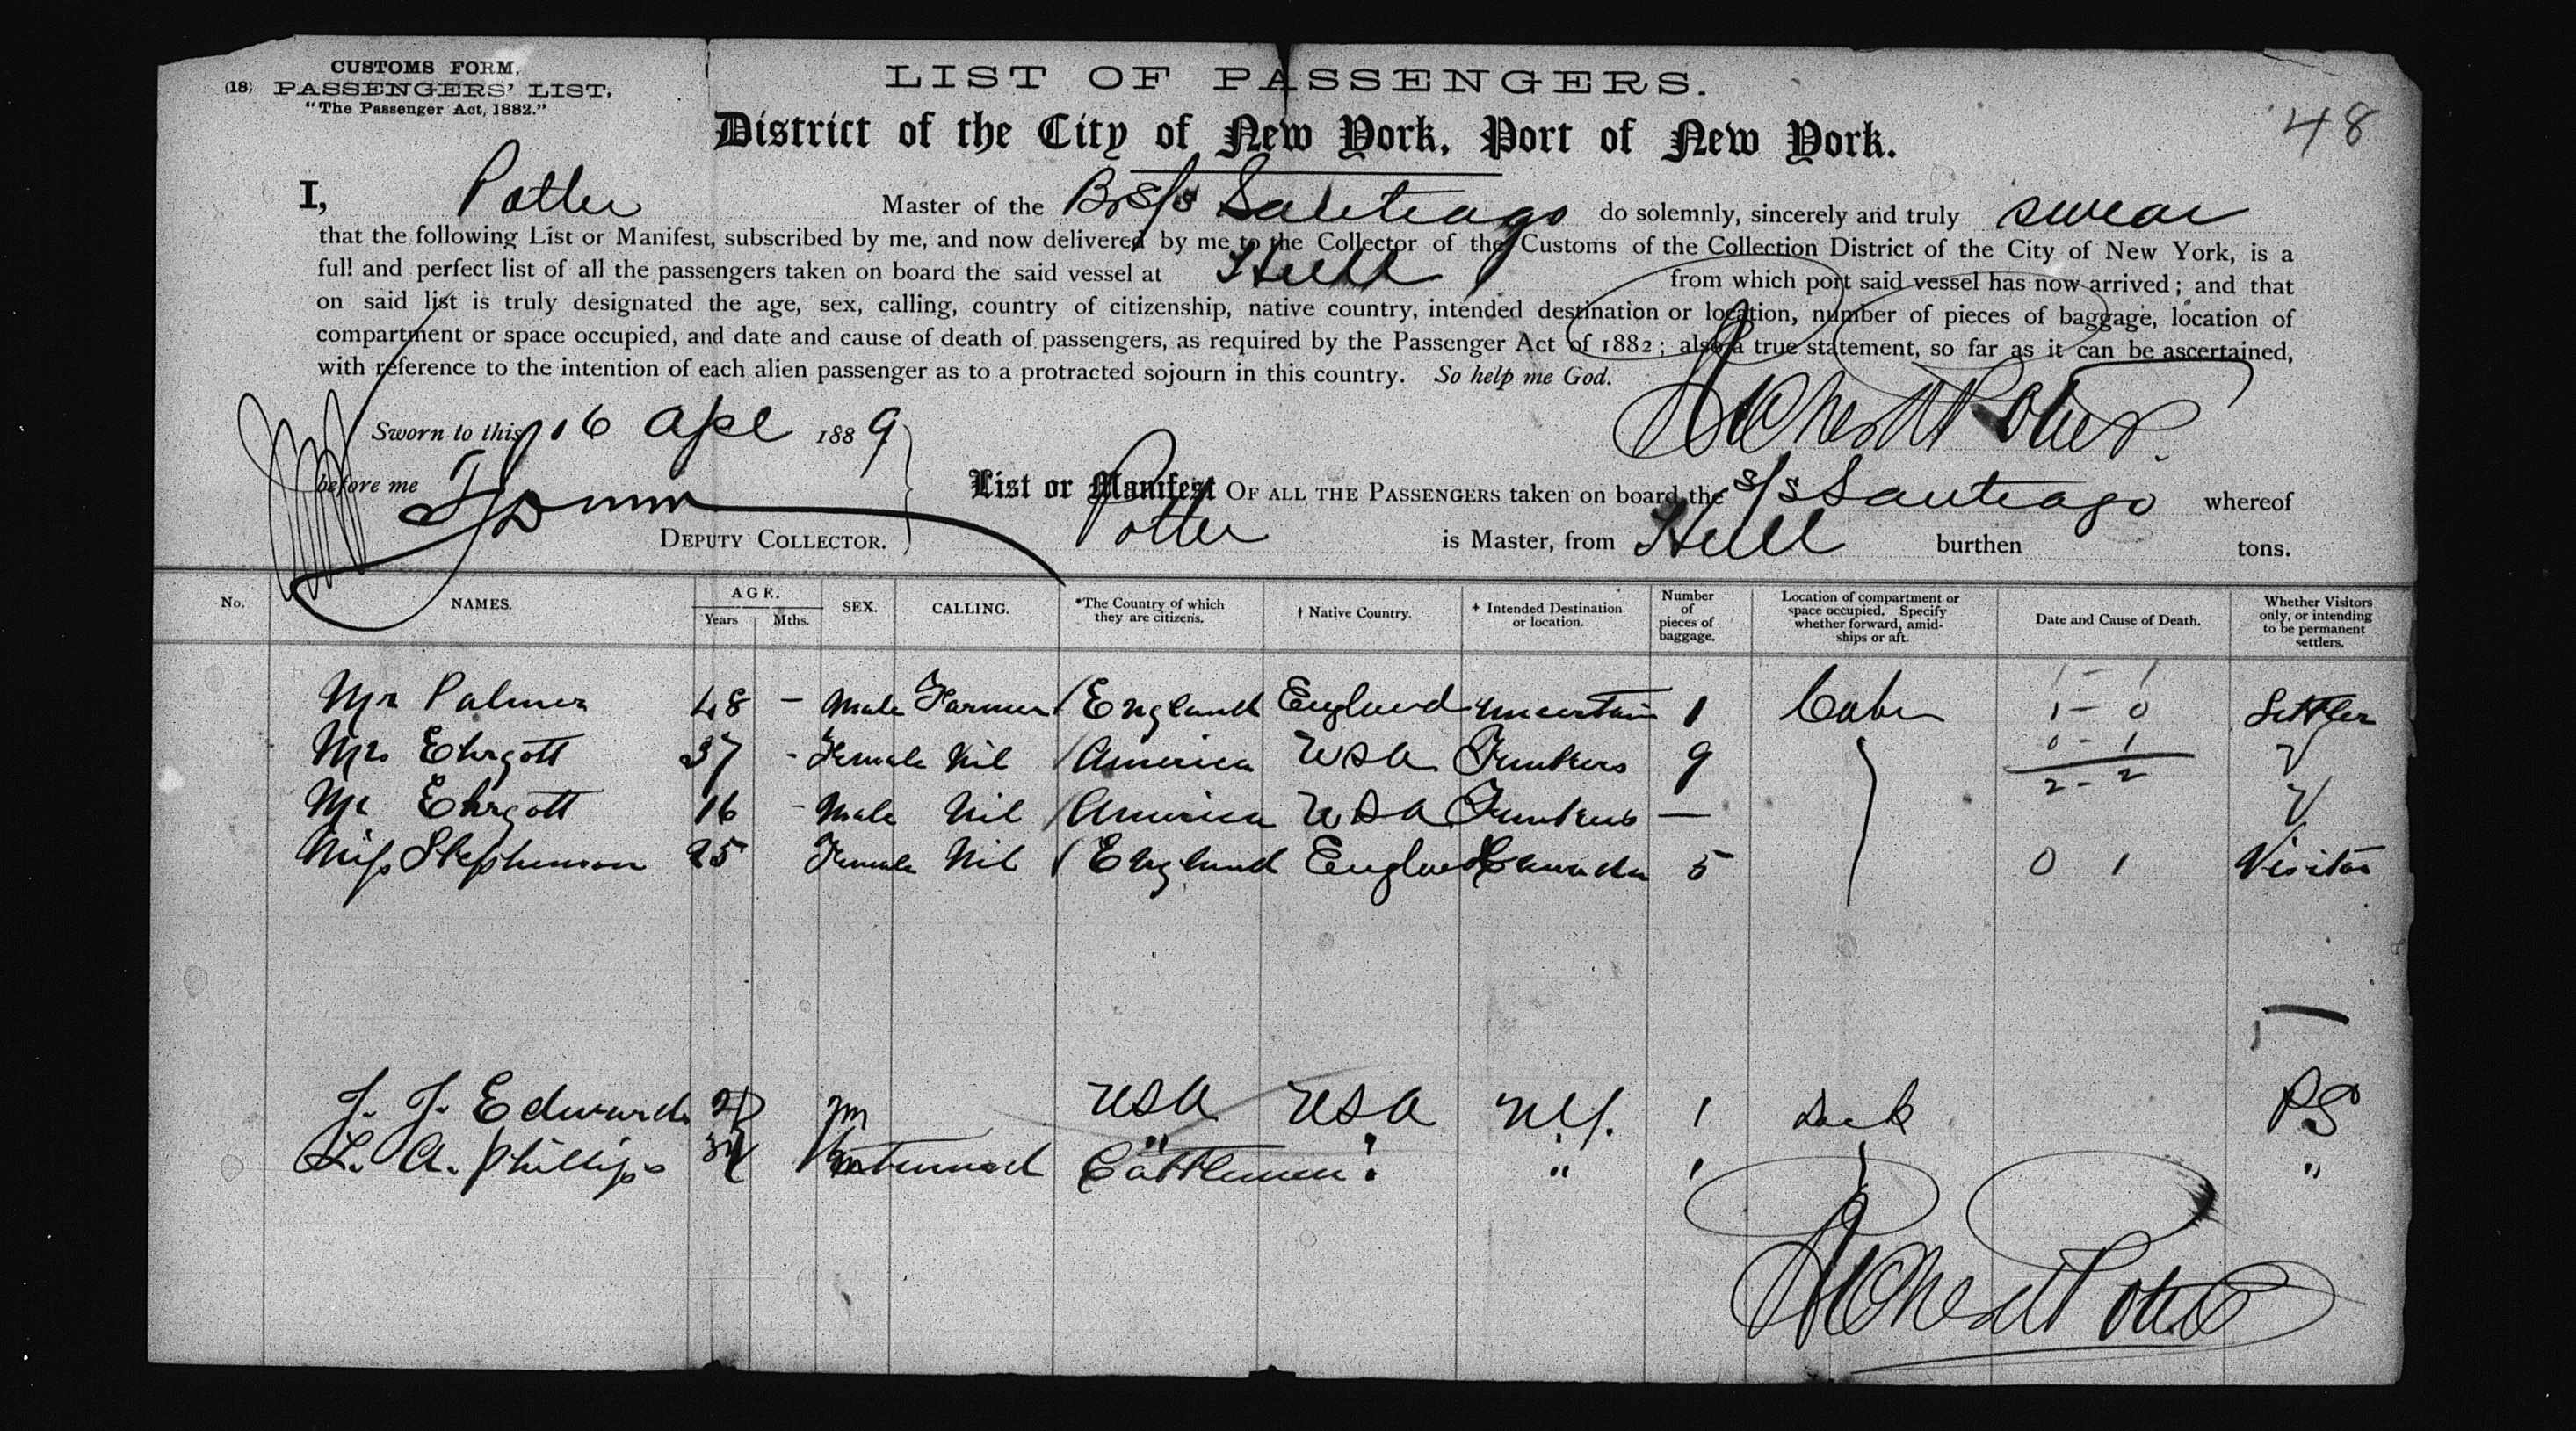 CUSTOMS FORM,
(18) PASSENGERS' LIST,
"The Passenger Act, 1882."
LIST OF PASSENGERS.
District of the City of New York, Port of New York.
48
I, Potter Master of the Br s/s Santiago do solemnly, sincerely and truly swear
that the following List or Manifest, subscribed by me, and now delivered by me to the Collector of the Customs of the Collection District of the City of New York, is a
full and perfect list of all the passengers taken on board the said vessel at Hull from which port said vessel has now arrived; and that
on said list is truly designated the age, sex, calling, country of citizenship, native country, intended destination or location, number of pieces of baggage, location of
compartment or space occupied, and date and cause of death of passengers, as required by the Passenger Act of 1882; also a true statement, so far as it can be ascertained,
with reference to the intention of each alien passenger as to a protracted sojourn in this country. So help me God.
Sworn to this 16 Apl 1889
before me
DEPUTY COLLECTOR.
List or Manifest OF ALL THE PASSENGERS taken on board the s/s Santiago whereof
Potter is Master, from Hull burthen tons.
No. NAMES. AGE. Years Mths. SEX. CALLING. *The Country of which they are citizens. † Native Country. + Intended Destination or location. Number of pieces of baggage. Location of compartment or space occupied. Specify whether forward, amidships or aft. Date and Cause of Death. Whether Visitors only, or intending to be permanent settlers.
Mr Palmer 48 - Male Farmer England England uncertain 1 Cabin 1 - 0 Settler
Mrs Ehrgott 37 - Female Nil America USA 9 0 - 1
2 - 2
Mr Ehrgott 16 - Male Nil America USA —
Miss Stephenson 25 Female Nil England England Canada 5 0 1 Visitor
J. J. Edwards m USA USA N.Y. 1 Deck PS
L. A. Phillips Returned Cattlemen " " 1 "